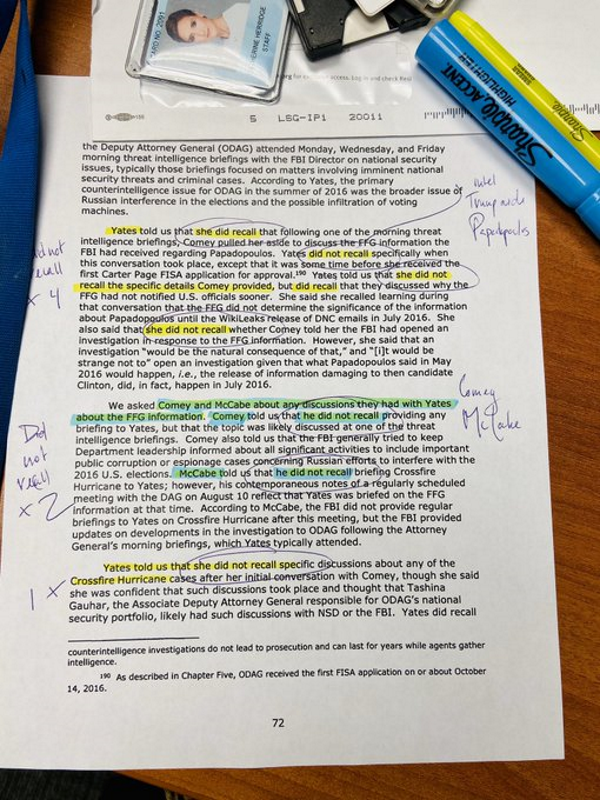 CARD NO. 2091
ERINE HERRIDGE
STAFF
access. Log in and check
5 LSG-IP1 20011
Sharpie. ACCENT.
HIGHLIGHTER
Sharpie
the Deputy Attorney General (ODAG) attended Monday, Wednesday, and Friday
morning threat intelligence briefings with the FBI Director on national security
issues, typically those briefings focused on matters involving imminent national
security threats and criminal cases. According to Yates, the primary
counterintelligence issue for ODAG in the summer of 2016 was the broader issue of
Russian interference in the elections and the possible infiltration of voting
machines.
intel
Trump aide
Papadopoulos
Yates told us that she did recall that following one of the morning threat
intelligence briefings, Comey pulled her aside to discuss the FFG information the
FBI had received regarding Papadopoulos. Yates did not recall specifically when
this conversation took place, except that it was some time before she received the
first Carter Page FISA application for approval.¹⁹⁰ Yates told us that she did not
recall the specific details Comey provided, but did recall that they discussed why the
FFG had not notified U.S. officials sooner. She said she recalled learning during
that conversation that the FFG did not determine the significance of the information
about Papadopoulos until the WikiLeaks release of DNC emails in July 2016. She
also said that she did not recall whether Comey told her the FBI had opened an
investigation in response to the FFG information. However, she said that an
investigation "would be the natural consequence of that," and "[i]t would be
strange not to" open an investigation given what Papadopoulos said in May
2016 would happen, i.e., the release of information damaging to then candidate
Clinton, did, in fact, happen in July 2016.
did not
recall
x 4
We asked Comey and McCabe about any discussions they had with Yates
about the FFG information. Comey told us that he did not recall providing any
briefing to Yates, but that the topic was likely discussed at one of the threat
intelligence briefings. Comey also told us that the FBI generally tried to keep
Department leadership informed about all significant activities to include important
public corruption or espionage cases concerning Russian efforts to interfere with the
2016 U.S. elections. McCabe told us that he did not recall briefing Crossfire
Hurricane to Yates; however, his contemporaneous notes of a regularly scheduled
meeting with the DAG on August 10 reflect that Yates was briefed on the FFG
information at that time. According to McCabe, the FBI did not provide regular
briefings to Yates on Crossfire Hurricane after this meeting, but the FBI provided
updates on developments in the investigation to ODAG following the Attorney
General's morning briefings, which Yates typically attended.
Comey
McCabe
Did
not
recall
x 2
Yates told us that she did not recall specific discussions about any of the
Crossfire Hurricane cases after her initial conversation with Comey, though she said
she was confident that such discussions took place and thought that Tashina
Gauhar, the Associate Deputy Attorney General responsible for ODAG's national
security portfolio, likely had such discussions with NSD or the FBI. Yates did recall
1 x
counterintelligence investigations do not lead to prosecution and can last for years while agents gather
intelligence.
¹⁹⁰ As described in Chapter Five, ODAG received the first FISA application on or about October
14, 2016.
72